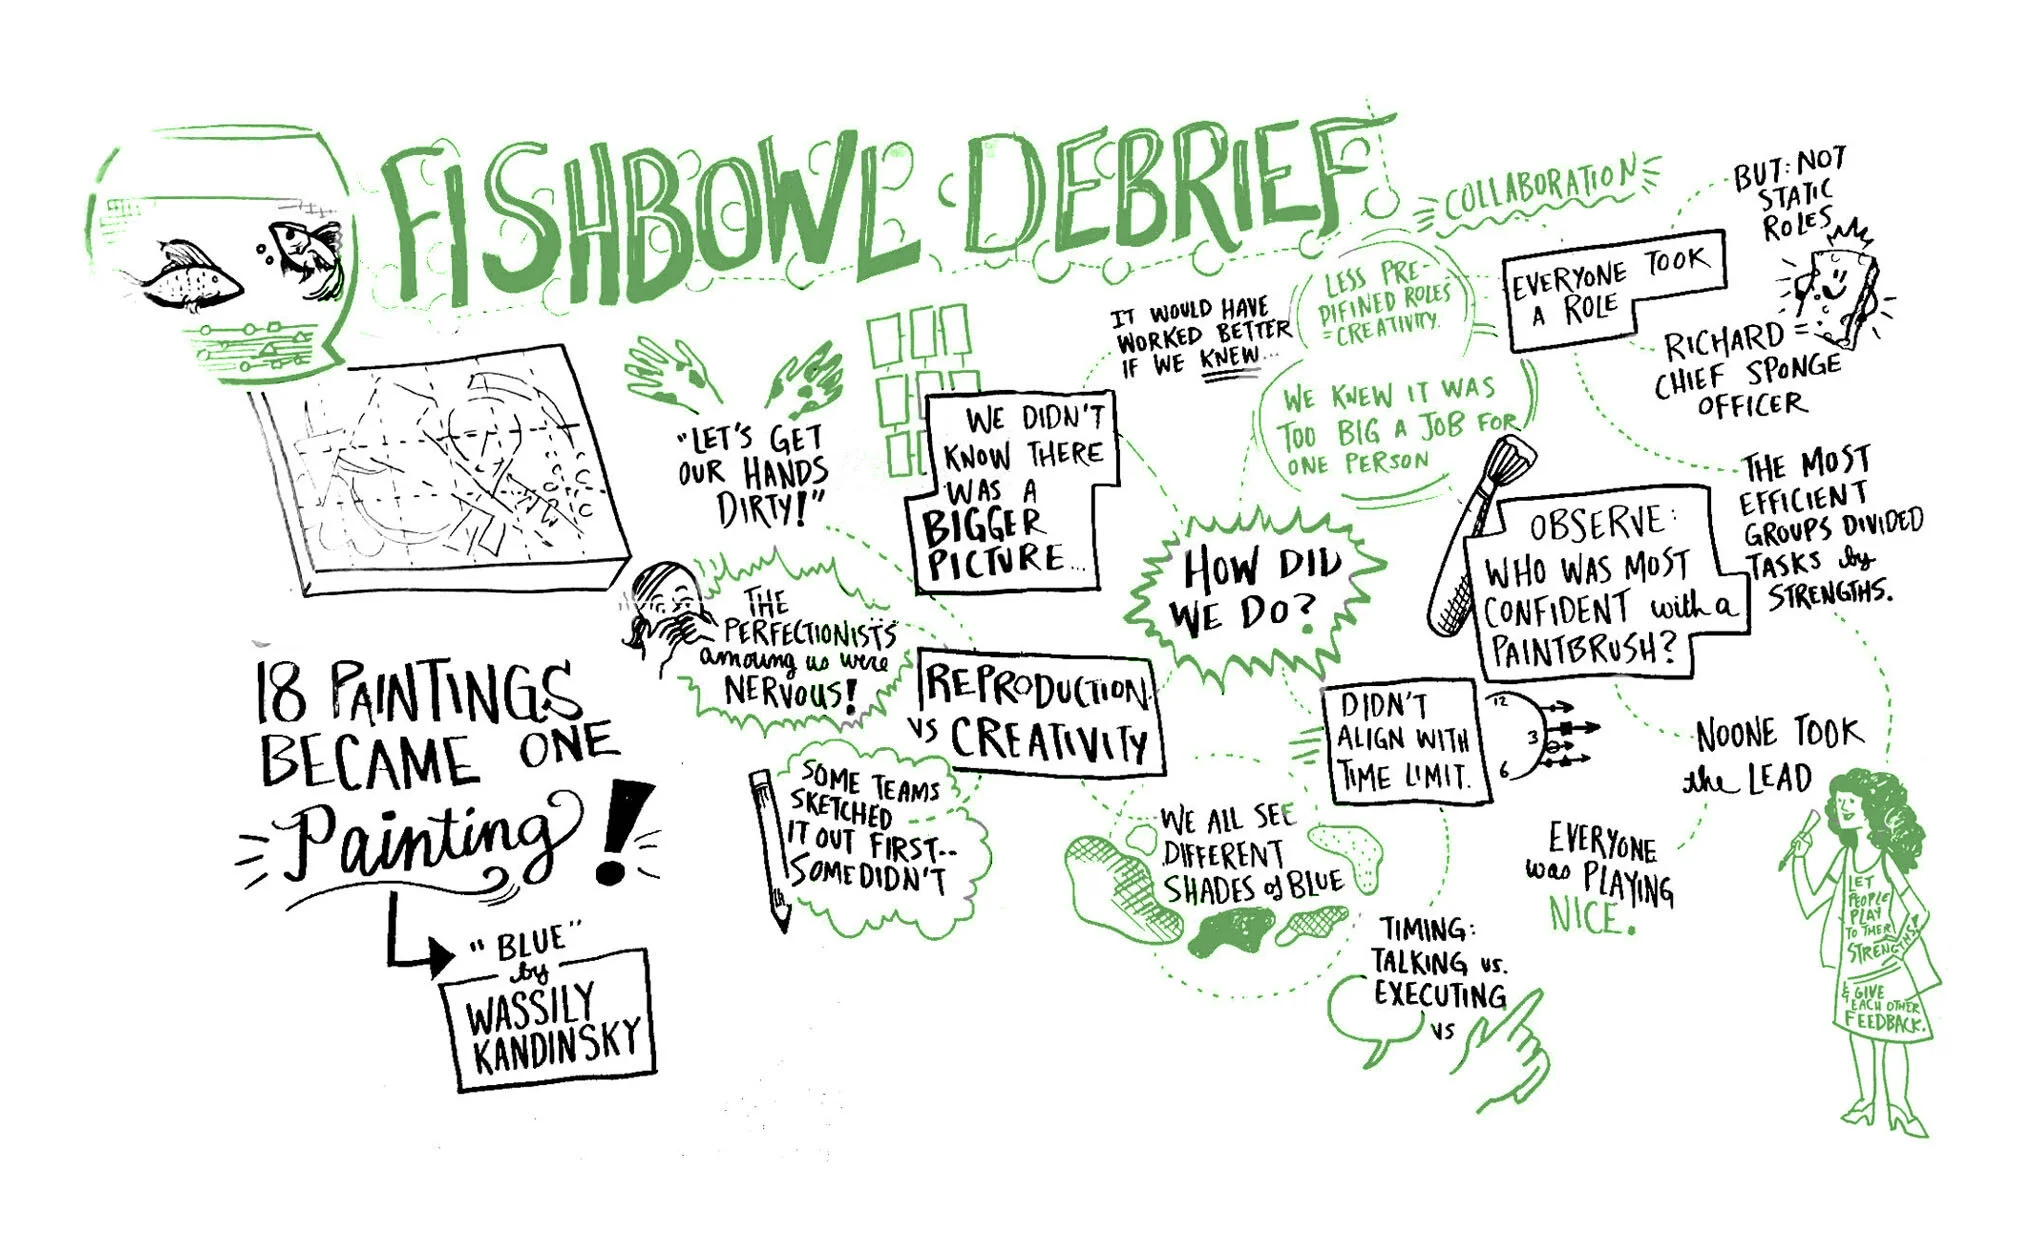 FISHBOWL DEBRIEF
18 PAINTINGS
BECAME ONE
Painting!
"BLUE"
by
WASSILY
KANDINSKY
"LET'S GET
OUR HANDS
DIRTY!"
THE
PERFECTIONISTS
amoung us were
NERVOUS!
SOME TEAMS
SKETCHED
IT OUT FIRST--
SOME DIDN'T
WE DIDN'T
KNOW THERE
WAS A
BIGGER
PICTURE...
IT WOULD HAVE
WORKED BETTER
IF WE KNEW...
REPRODUCTION
VS CREATIVITY
HOW DID
WE DO?
WE ALL SEE
DIFFERENT
SHADES of BLUE
COLLABORATION
LESS PRE-
DIFINED ROLES
= CREATIVITY.
WE KNEW IT WAS
TOO BIG A JOB FOR
ONE PERSON
EVERYONE TOOK
A ROLE
BUT: NOT
STATIC
ROLES
RICHARD =
CHIEF SPONGE
OFFICER
THE MOST
EFFICIENT
GROUPS DIVIDED
TASKS by
STRENGTHS.
OBSERVE:
WHO WAS MOST
CONFIDENT with a
PAINTBRUSH?
DIDN'T
ALIGN WITH
TIME LIMIT.
12
3
6
TIMING:
TALKING vs.
EXECUTING
VS
NOONE TOOK
the LEAD
EVERYONE
was PLAYING
NICE.
LET
PEOPLE
PLAY
TO THEIR
STRENGTHS
& GIVE
EACH OTHER
FEEDBACK.